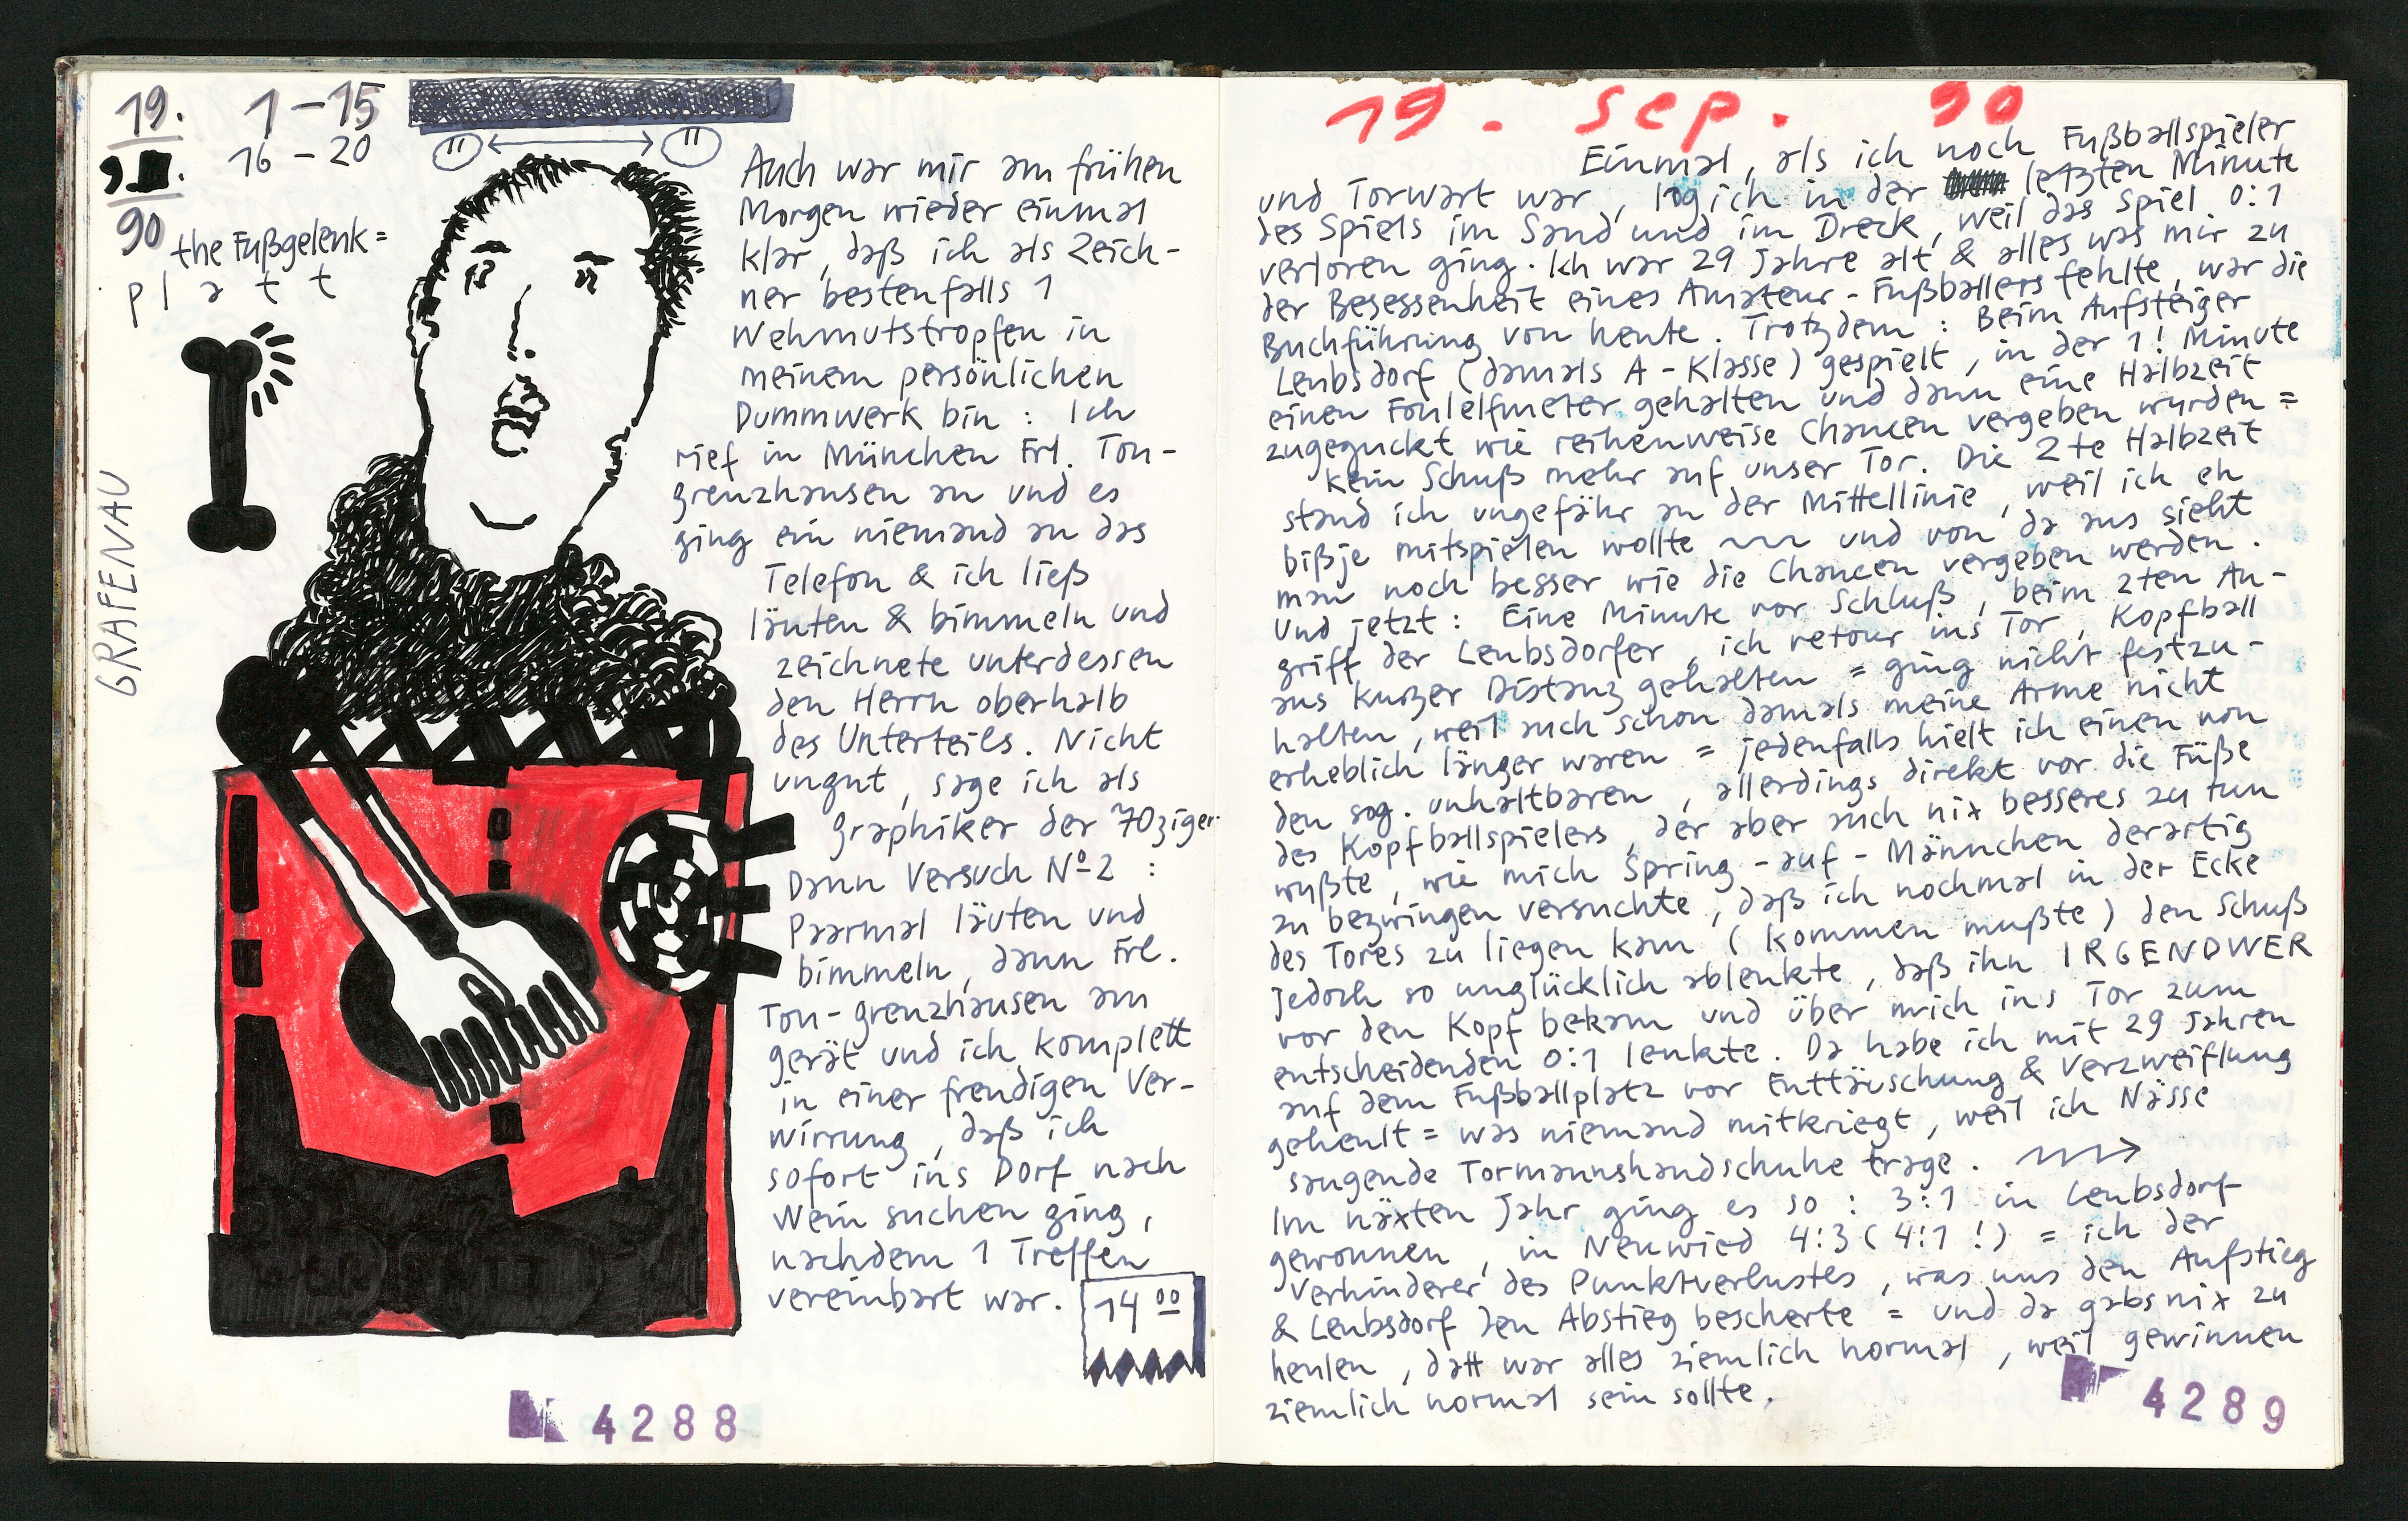 19.
9.
90
1 – 15
16 – 20
" "
the Fußgelenk =
platt
GRAFENAU
Auch war mir am frühen
Morgen wieder einmal
klar, daß ich als Zeich-
ner bestenfalls 1
Wehmutstropfen in
meinem persönlichen
Dummwerk bin : Ich
rief in München Frl. Ton-
grenzhausen an und es
ging ein niemand an das
Telefon & ich ließ
läuten & bimmeln und
zeichnete unterdessen
den Herrn oberhalb
des Unterteils. Nicht
ungut, sage ich als
Graphiker der 70ziger.
Dann Versuch Nº 2 :
Paarmal läuten und
bimmeln, dann Frl.
Ton-grenzhausen am
gerät und ich komplett
in einer freudigen Ver-
wirrung, daß ich
sofort ins Dorf nach
Wein suchen ging,
nachdem 1 Treffen
vereinbart war.
14 00
4288
19. Sep. 90
Einmal, als ich noch Fußballspieler
und Torwart war, lag ich in der letzten Minute
des Spiels im Sand und im Dreck, weil das Spiel 0:1
verloren ging. Ich war 29 Jahre alt & alles was mir zu
der Besessenheit eines Amateur-Fußballers fehlte, war die
Buchführung von heute. Trotzdem : Beim Aufsteiger
Leubsdorf (damals A-Klasse) gespielt, in der 1! Minute
einen Foulelfmeter gehalten und dann eine Halbzeit
zugeguckt wie reihenweise Chancen vergeben wurden =
kein Schuß mehr auf unser Tor. Die 2te Halbzeit
stand ich ungefähr an der Mittellinie, weil ich eh
bißje mitspielen wollte ~~ und von da aus sieht
man noch besser wie die Chancen vergeben werden.
Und jetzt : Eine Minute vor Schluß, beim 2ten An-
griff der Leubsdorfer, ich retour ins Tor, Kopfball
aus kurzer Distanz gehalten = ging nicht festzu-
halten, weil auch schon damals meine Arme nicht
erheblich länger waren = jedenfalls hielt ich einen von
den sog. unhaltbaren, allerdings direkt vor die Füße
des Kopfballspielers, der aber auch nix besseres zu tun
wußte, wie mich Spring-auf-Männchen derartig
zu bezwingen versuchte, daß ich nochmal in der Ecke
des Tores zu liegen kam (kommen mußte) den Schuß
jedoch so unglücklich ablenkte, daß ihn IRGENDWER
vor den Kopf bekam und über mich ins Tor zum
entscheidenden 0:1 lenkte. Da habe ich mit 29 Jahren
auf dem Fußballplatz vor Enttäuschung & Verzweiflung
geheult = was niemand mitkriegt, weil ich Nässe
saugende Tormannshandschuhe trage.
Im näxten Jahr ging es so : 3:1 in Leubsdorf
gewonnen, in Neuwied 4:3 (4:1 !) = ich der
Verhinderer des Punktverlustes, was uns den Aufstieg
& Leubsdorf den Abstieg bescherte = und da gabs nix zu
heulen, datt war alles ziemlich normal, weil gewinnen
ziemlich normal sein sollte.
4289